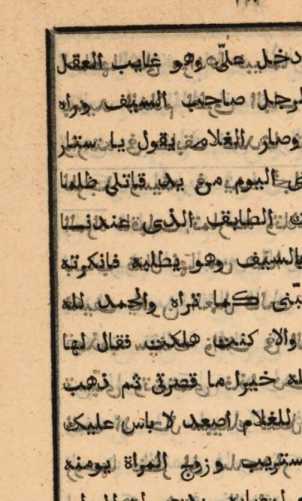 دخل عليّ وهو غايب العقل
لرجل صاحب السيف وراه
وصار الغلام يقول يا ستار
اليوم من يد قاتلي ظلما
الطابق الذي عندنا
بالسيف وهو يطلبه فانكرته
كما تراه والحمد لله
والا كنت هلكت فقال لها
خيرا ما قصرتي ثم ذهب
للغلام اصعد لا باس عليك
وزوج المراة يومنه